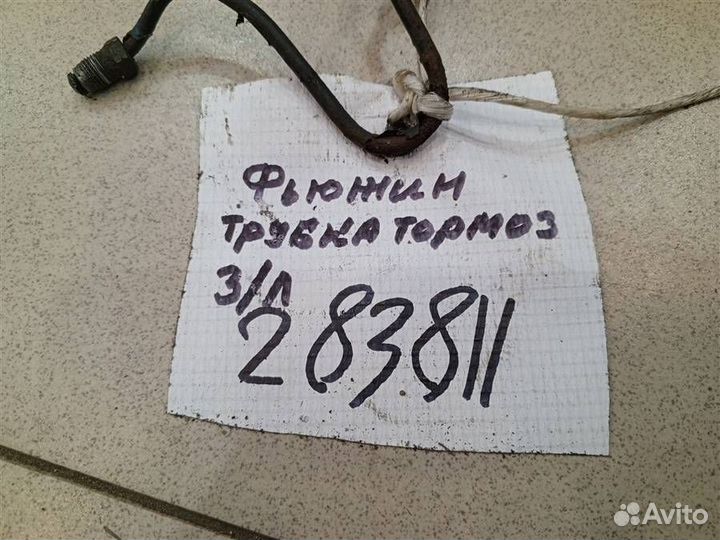 Фьюжин
трубка тормоз
з/л
283811
Avito